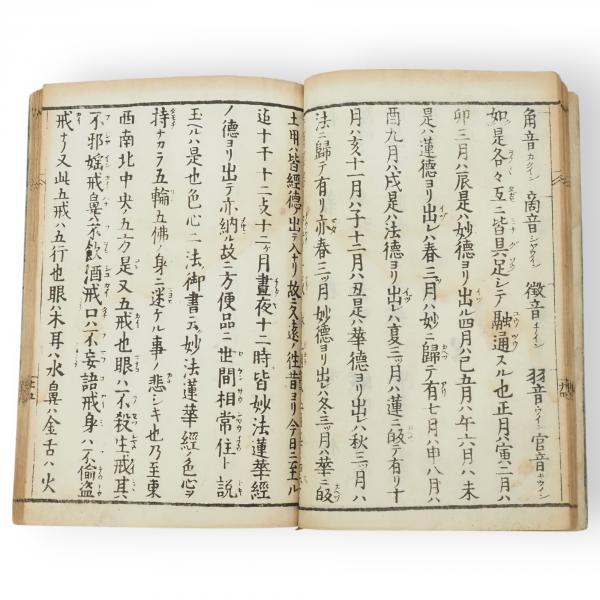 角音 商音 徴音 羽音 宮音
如是各々互ニ皆具足シテ融通スル也正月ハ寅二月ハ
卯三月ハ辰是ハ妙德ヨリ出ル四月ハ己五月ハ午六月ハ未
是ハ蓮德ヨリ出レハ春三月ハ妙ニ歸テ有七月ハ申八月ハ
酉九月ハ戌是ハ法德ヨリ出レハ夏三月ハ蓮ニ皈テ有リ十
月ハ亥十一月ハ子十二月ハ丑是ハ華德ヨリ出レハ秋三月ハ
法ニ歸テ有リ亦春三月妙德ヨリ出レハ冬三月ハ華ニ皈
土用ハ皆經德出テタリ故ニ久遠ノ徃昔ヨリ今日ニ至ル
迠十干十二支十二ヶ月晝夜十二時皆妙法蓮華經
ノ德ヨリ出テ亦納ル故ニ方便品ニ世間相常住ト說
玉ヘルハ是也色心二法御書ニ云妙法蓮華經ノ色心ヲ
持ナカラ五輪五佛ノ身ニ迷ケル事ノ悲シキ也乃至東
西南北中央ノ五方是又五戒也眼ハ不殺生戒其
不邪婬戒鼻ハ不飲酒戒口ハ不妄語戒身ハ不偷盗
戒ナリ又此五戒ハ五行也眼ハ木耳ハ水鼻ハ金舌ハ火